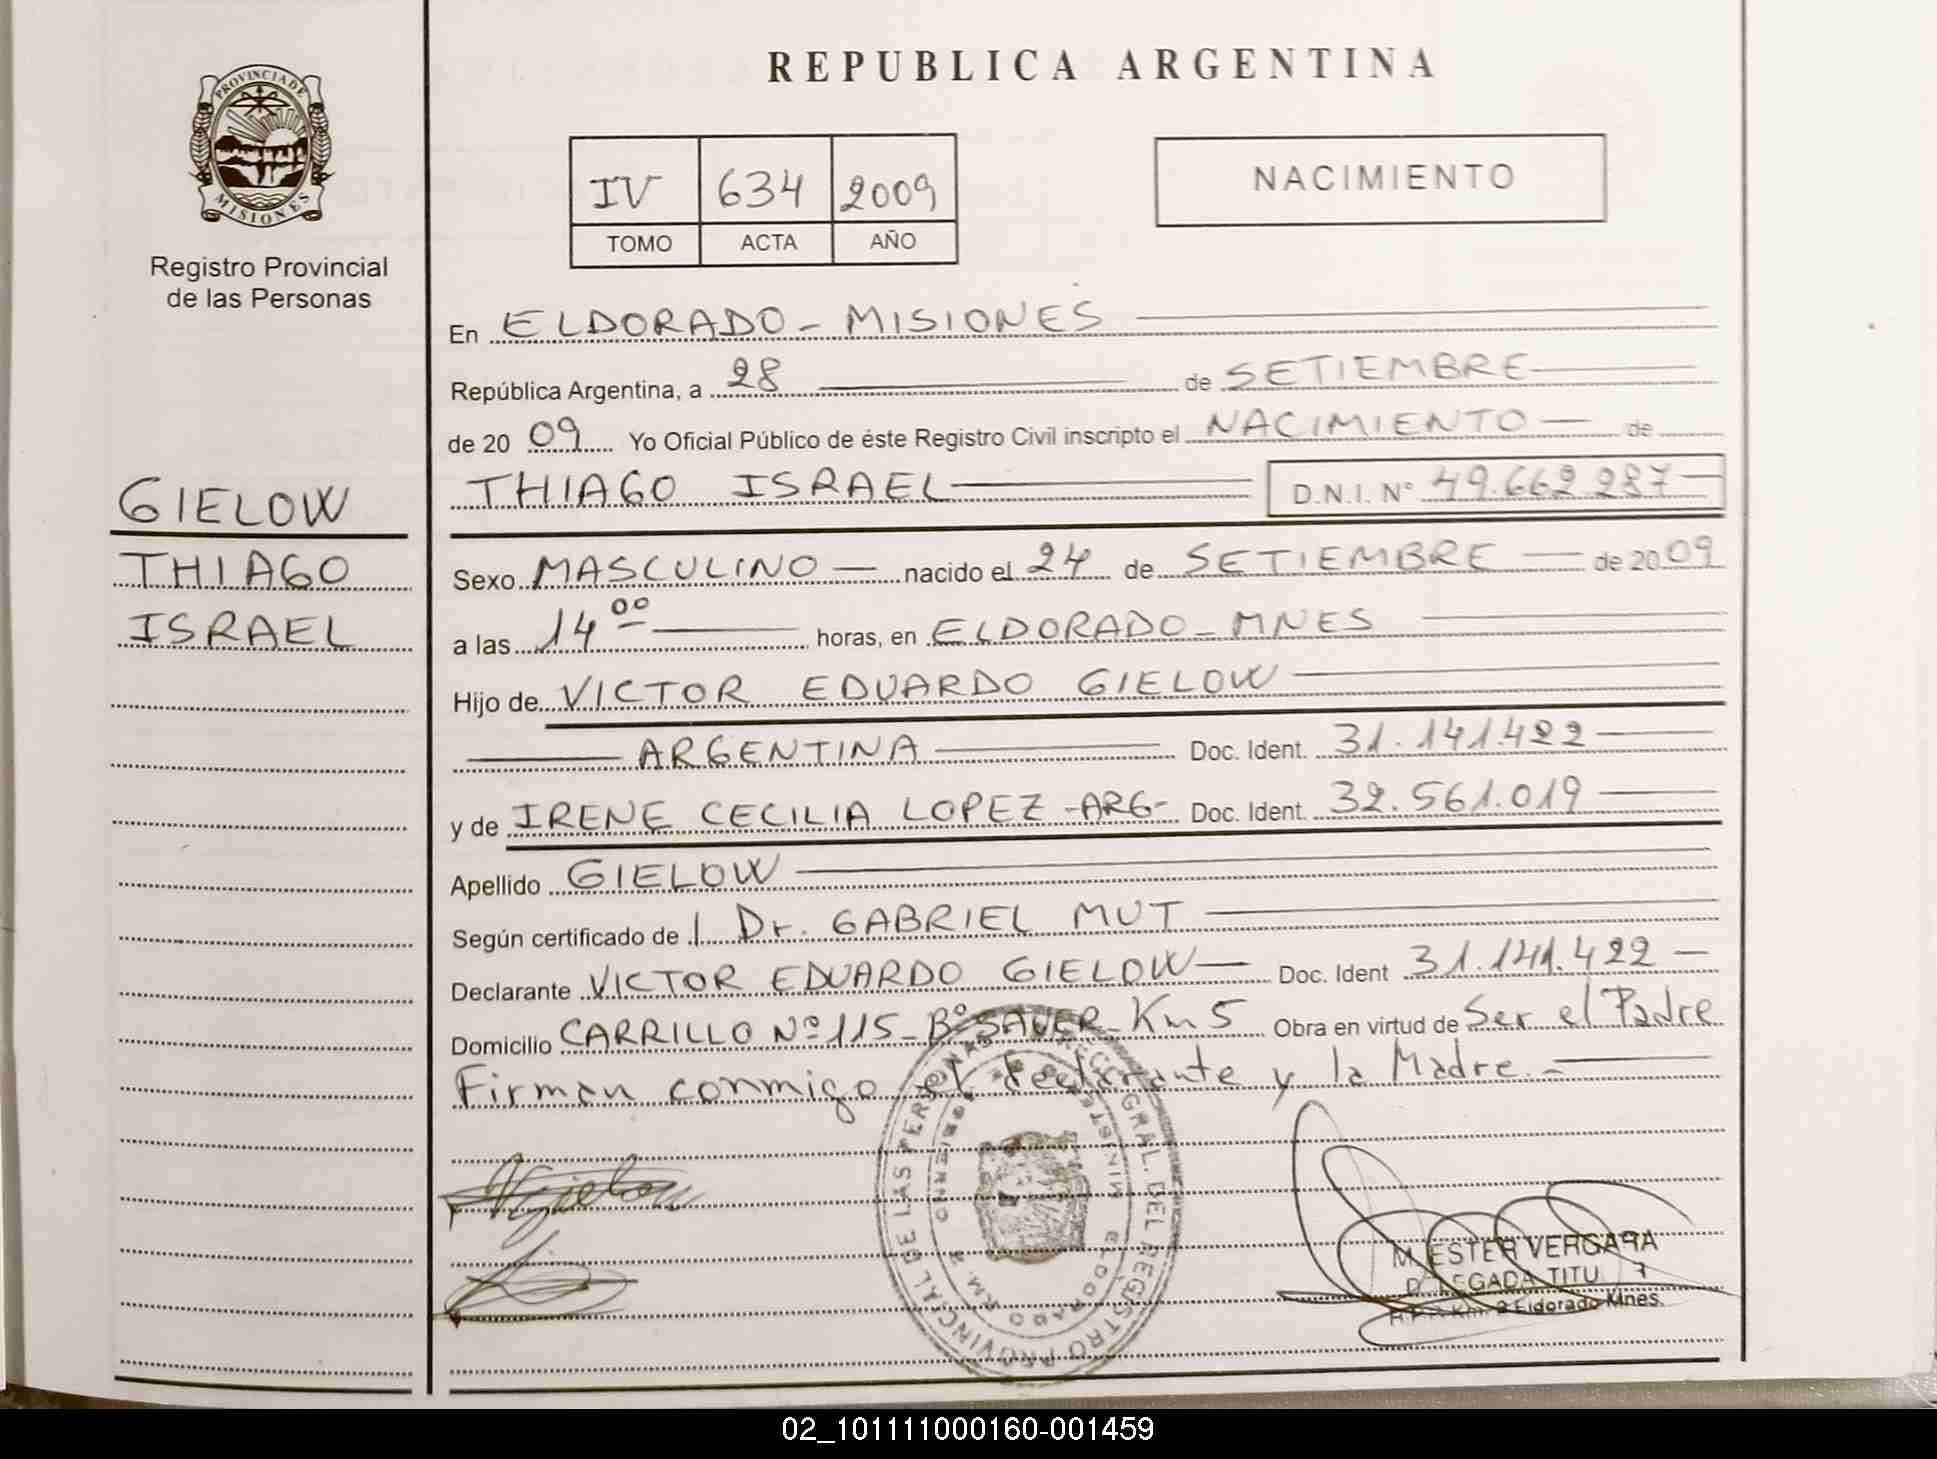 REPUBLICA ARGENTINA
PROVINCIA DE
MISIONES
Registro Provincial
de las Personas
IV 634 2009
TOMO ACTA AÑO
NACIMIENTO
En ELDORADO - MISIONES
República Argentina, a 28 de SETIEMBRE
de 20 09 Yo Oficial Público de éste Registro Civil inscripto el NACIMIENTO de
GIELOW
THIAGO ISRAEL D.N.I. Nº 49.662.287
THIAGO
ISRAEL
Sexo MASCULINO nacido el 24 de SETIEMBRE de 2009
a las 14 00 horas, en ELDORADO - MNES
Hijo de VICTOR EDUARDO GIELOW
ARGENTINA Doc. Ident. 31.141.422
y de IRENE CECILIA LOPEZ -ARG- Doc. Ident. 32.561.019
Apellido GIELOW
Según certificado de l Dr. GABRIEL MUT
Declarante VICTOR EDUARDO GIELOW Doc. Ident 31.141.422
Domicilio CARRILLO Nº 115 - Bº SAUER - Km 5 Obra en virtud de Ser el Padre
Firman conmigo el declarante y la Madre.-
GRAL. DEL REGISTRO PROVINCIAL DE LAS PERSONAS
ELDORADO KM. 2
M. ESTER VERGARA
DELEGADA TITU
Km. 2 Eldorado Mnes.
02_101111000160-001459